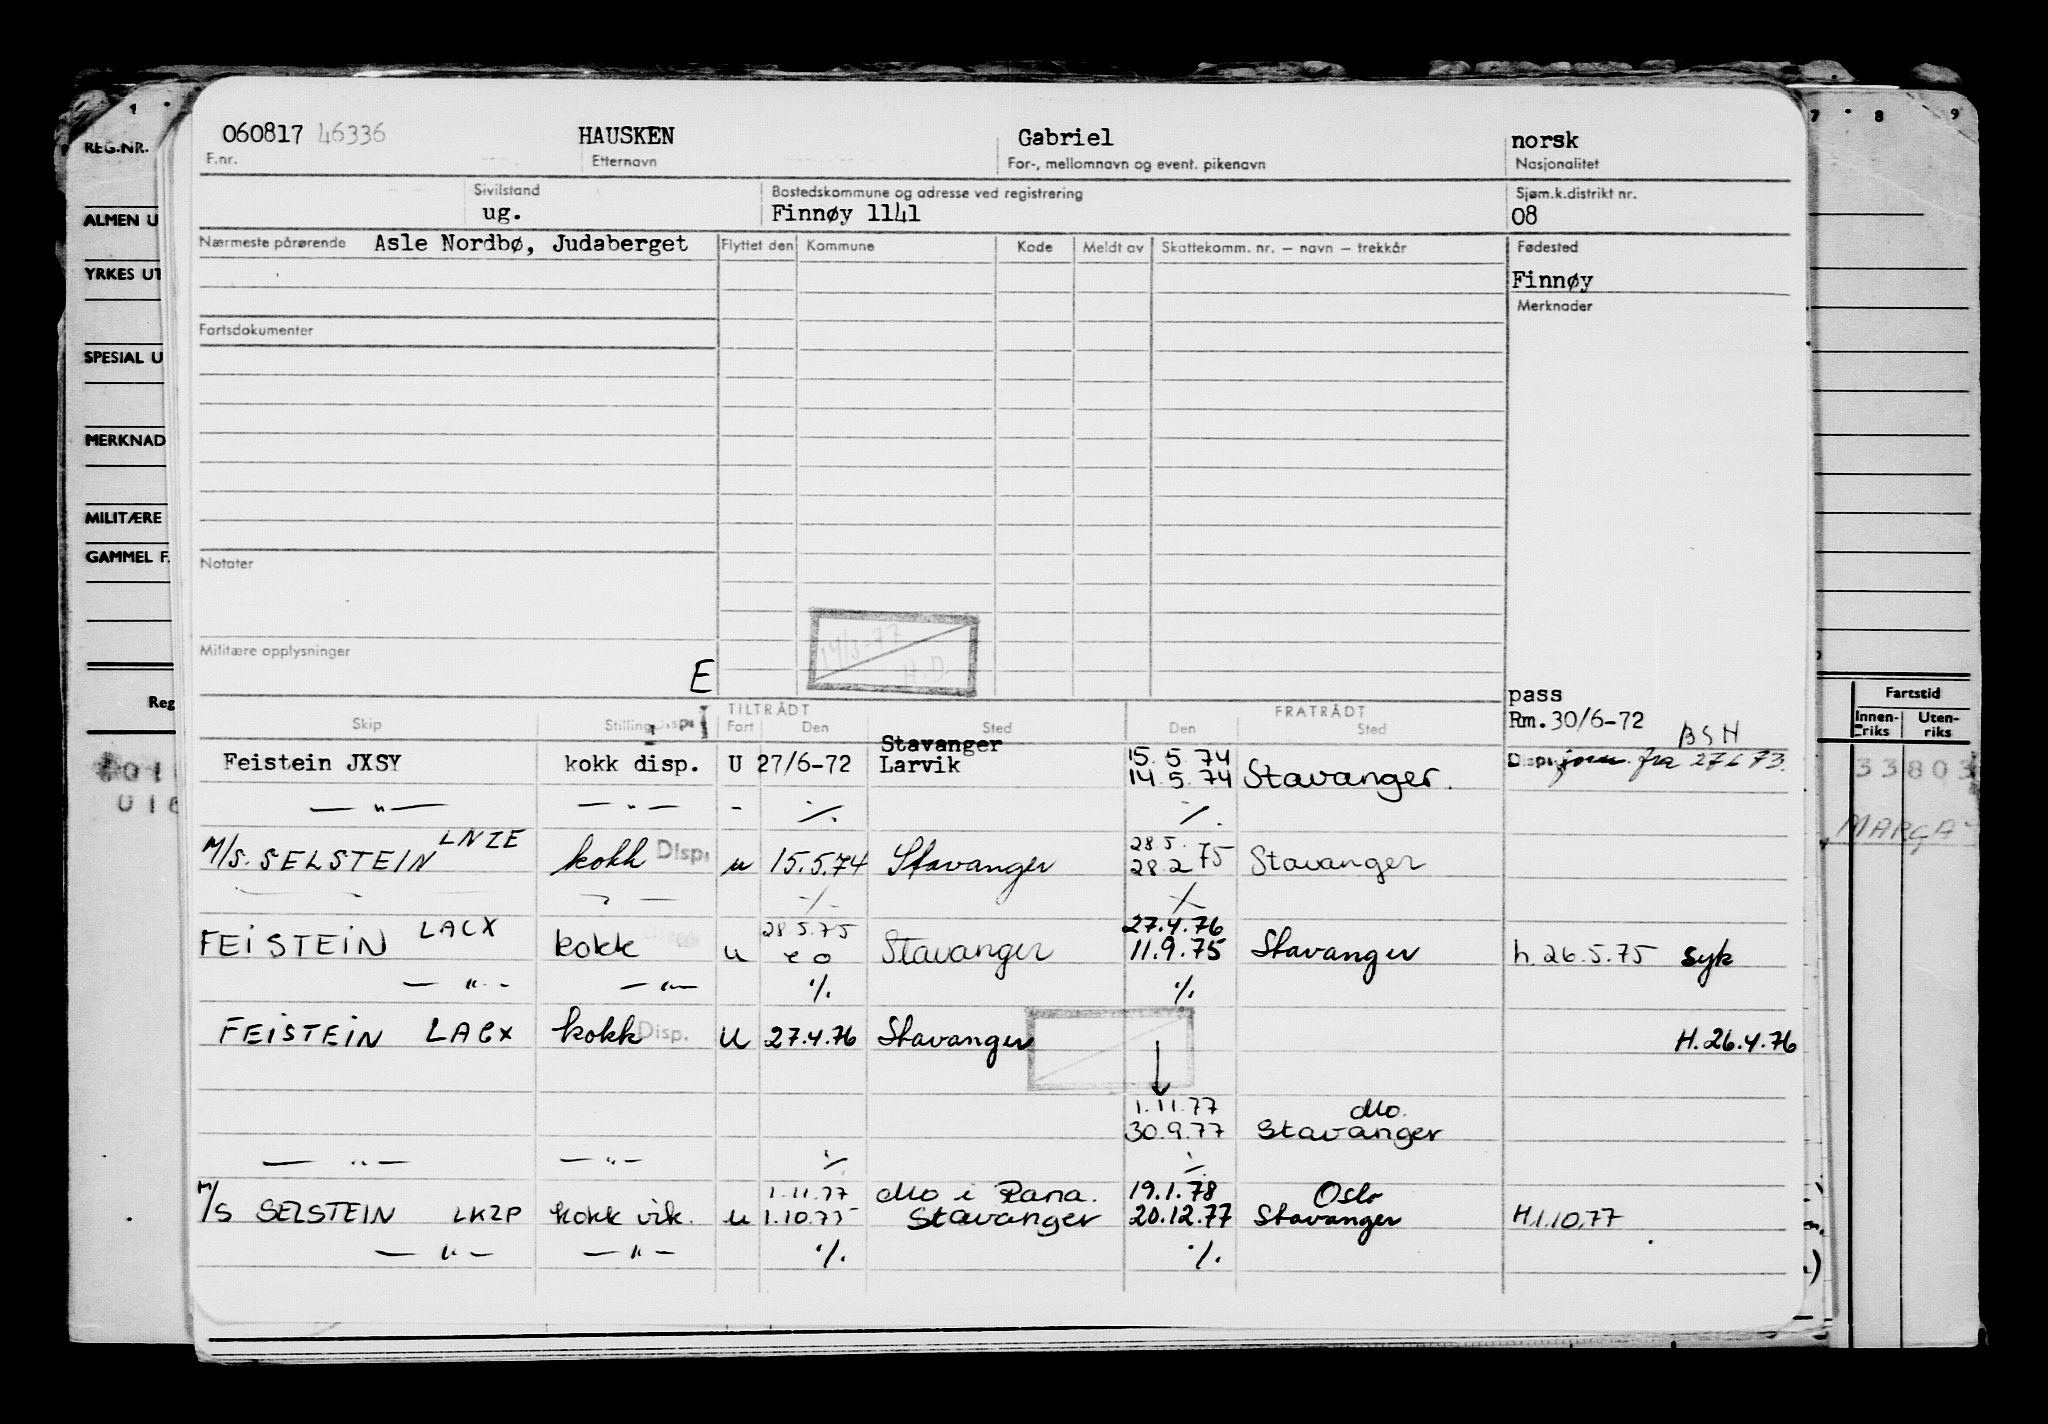 1 7 8 9
REG.NR.
ALMEN U
YRKES UT
SPESIAL U
MERKNAD
MILITÆRE
GAMMEL F.
Reg
060817 46336 HAUSKEN Gabriel norsk
F.nr. Etternavn For-, mellomnavn og event. pikenavn Nasjonalitet
Sivilstand Bostedskommune og adresse ved registrering Sjøm.k.distrikt nr.
ug. Finnøy 1141 08
Nærmeste pårørende Asle Nordbø, Judaberget Flyttet den Kommune Kode Meldt av Skattekomm. nr. — navn — trekkår Fødested
Finnøy
Merknader
Fartsdokumenter
Notater
14/3-77
H.D.
Militære opplysninger
E
pass
Rm. 30/6-72
BSH
TILTRÅDT FRATRÅDT
Skip Stilling Disp. Fart Den Sted Den Sted
Stavanger 15.5.74
Feistein JXSY kokk disp. U 27/6-72 Larvik 14.5.74 Stavanger. Disp. fra 27673.
— " — — " — - ·/. ·/.
M/S. SELSTEIN LNZE kokk Disp. u 15.5.74 Stavanger 28.5. 28.2 75 Stavanger
·/. ·/.
28.5.75 27.4.76
FEISTEIN LACX kokk u Stavanger 11.9.75 Stavanger h. 26.5.75 syk
— " — — " — ·/. ·/.
FEISTEIN LACX kokk Disp. U 27.4.76 Stavanger H. 26.4.76
1.11.77 Mo.
30.9.77 Stavanger
— " — — " — ·/. ·/.
1.11.77 Mo i Rana. 19.1.78 Oslo
M/S SELSTEIN LKZP kokk vik. u 1.10.75 Stavanger 20.12.77 Stavanger H.1.10.77
— " — — " — ·/. ·/.
Fartstid
Innen-
riks
Uten-
riks
33803
MARGA